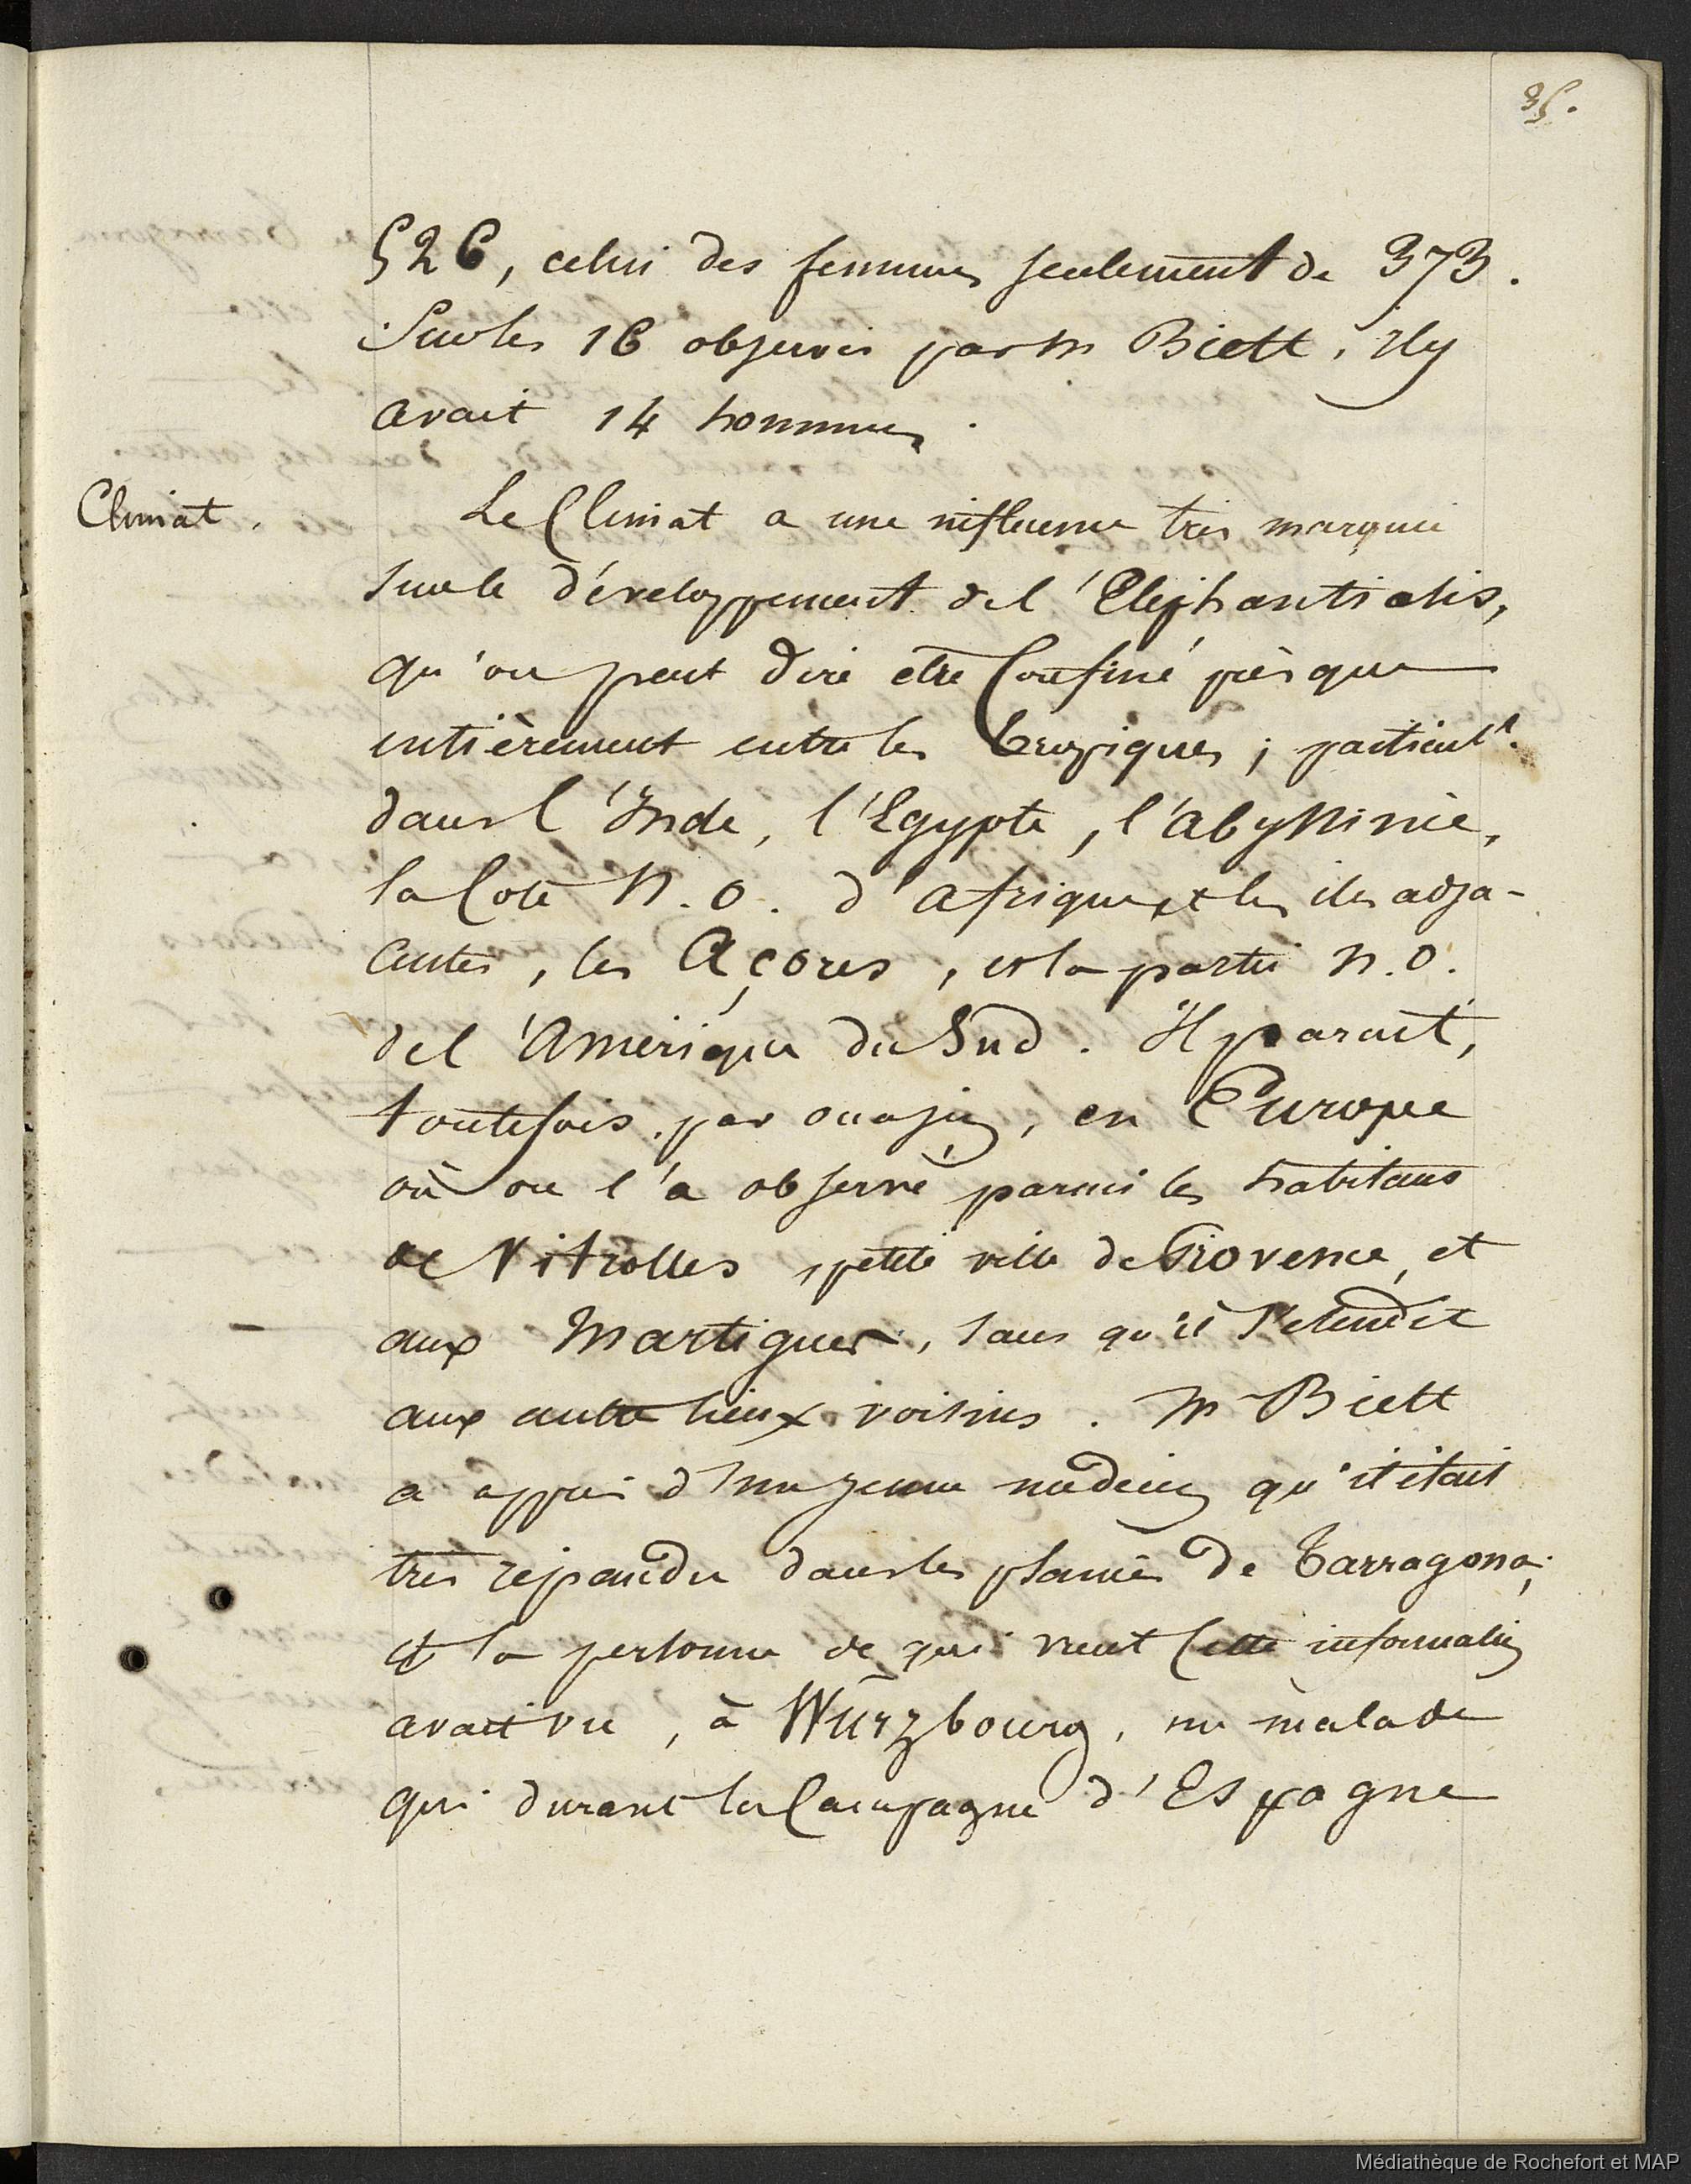 35.
526, celui des femmes seulement de 373.
Sur les 16 observés par M Biett, il y
avait 14 hommes.
Climat.
Le Climat a une influence très marquée
sur le développement de l'Elephantiasis,
qu'on peut dire être Confiné presque
entièrement entre les tropiques ; particult.
dans l'Inde, l'Egypte, l'abyssinie,
la Cote N.O. d'afrique et les iles adja-
centes, les Açores, et la partie N.O.
de l'Amérique du Sud. Il parait,
toutefois, par occasion, en Europe
où on l'a observé parmi les habitans
de Vitrolles, petite ville de Provence, et
aux Martigues, sans qu'il s'étendit
aux autre lieux voisins. M Biett
a appris d'un jeune medecin qu'il était
très répandu dans les plaines de Tarragona;
et la personne de qui vient Cette information
avait vu, à Würzbourg, un malade
qui durant la Campagne d'Espagne
Médiathèque de Rochefort et MAP